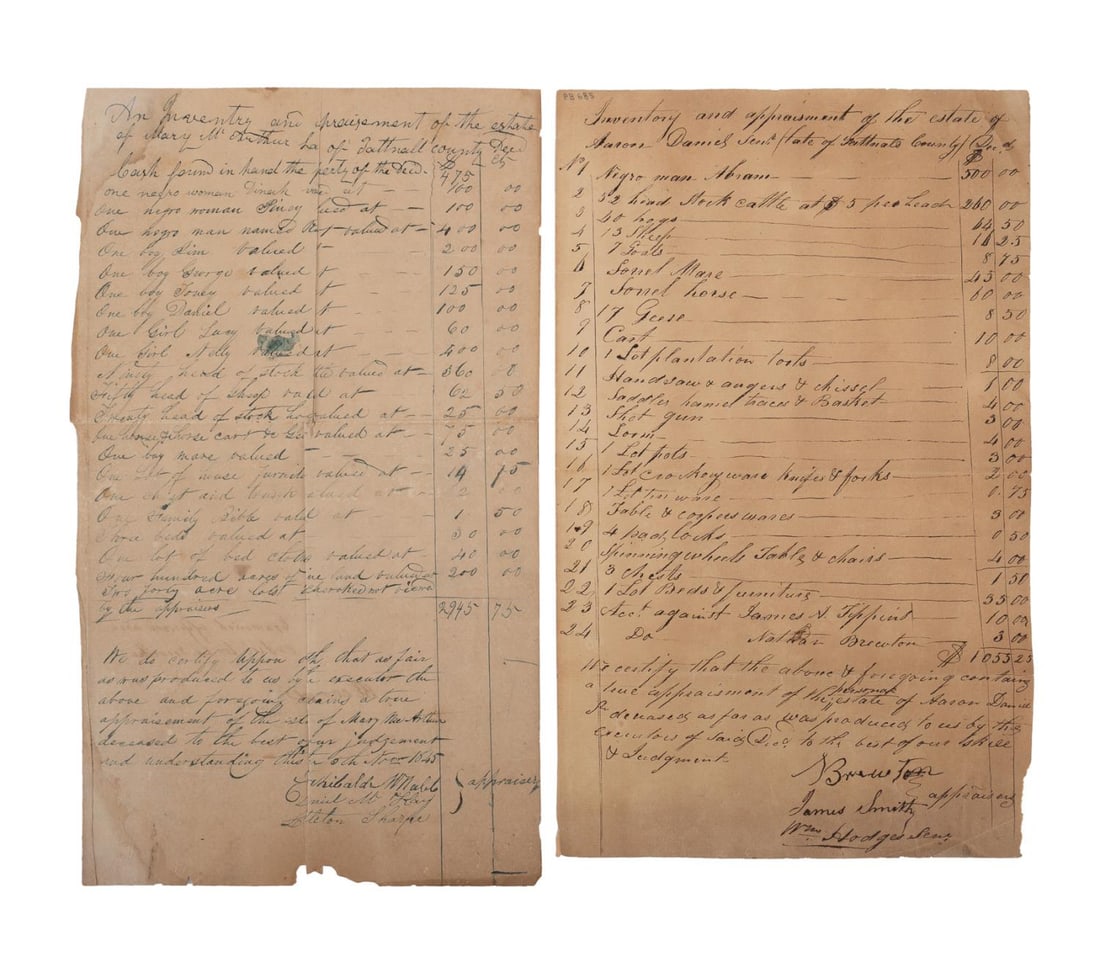 An Inventry and apraisement of the estate
of Mary Mc Arthur La of Tattnall county Decd
Cash found in hand the perty of the Decd. $475
one negro woman Dinah vaud at 100 00
One negro woman lued at 100 00
One negro man named valued at 400 00
One boy Jim valued t 200 00
One boy George valued t 150 00
One boy Toney valued t 125 00
One boy Daniel valued t 100 00
One Girl Lucy valued at 60 00
One Girl Nelly valued at 400 00
Ninety head of stock valued at 360 00
Fifty head of Sheep vald at 62 50
Twenty head of stock valued at 25 00
One horse cart & valued at 75 00
One bay mare valued 25 00
One Lot of valued at 14 75
One chest and at 2 00
One Family Bible valed at 1 50
Three beds valued at 30 00
One lot of bed cloths valued at 40 00
Four hundred acres of ine land valued at 200 00
Two forty acre lots Cherokee not viewd
by the appraisers 2945 75
We do certify uppon oth that as fair
as was produced to us by executor the
above and foregoing a true
appraisement of the of Mary Mc Arthur
deceased to the best of our judgement
and understanding this Nov 1845
Archibald
appraisers
Sharpe
PB 685
Inventory and appraisment of the estate of
Aaron Daniel Senr. (late of Tattnall County) Decd.
No 1 Negro man Abram $500 00
2 52 head stock cattle at $5 per head 260 00
3 40 hogs 64 50
4 13 Sheep 16 25
5 7 Goats 8 75
6 Sorrel Mare 45 00
7 Sorrel horse 60 00
8 17 Geese 8 50
9 Cart 10 00
10 1 Lot plantation tools 8 00
11 Handsaw & augers & chissel 1 00
12 Saddler hames traces & Basket 4 00
13 Shot gun 3 00
14 Loom 4 00
15 1 Lot pots 3 00
16 1 Lot crockery ware knifes & forks 2 00
17 1 Lot tin ware 0.75
18 Table & coopers wares 3 00
19 4 pad locks 0 50
20 Spinning wheels Table & chairs 4 00
21 3 chests 1 50
22 1 Lot Beds & furniture 35 00
23 Acct. against James A. Tippins 10 00
24 Do Nathan Brewton 3 00
$1055 25
We certify that the above & foregoing contains
a true appraisment of the personal estate of Aaron Daniel
Sr deceased, as far as was produced to us by the
executors of said Decd. to the best of our skill
& Judgment
N Brewton
appraisers
James Smith
Wm. Hodges Senr.